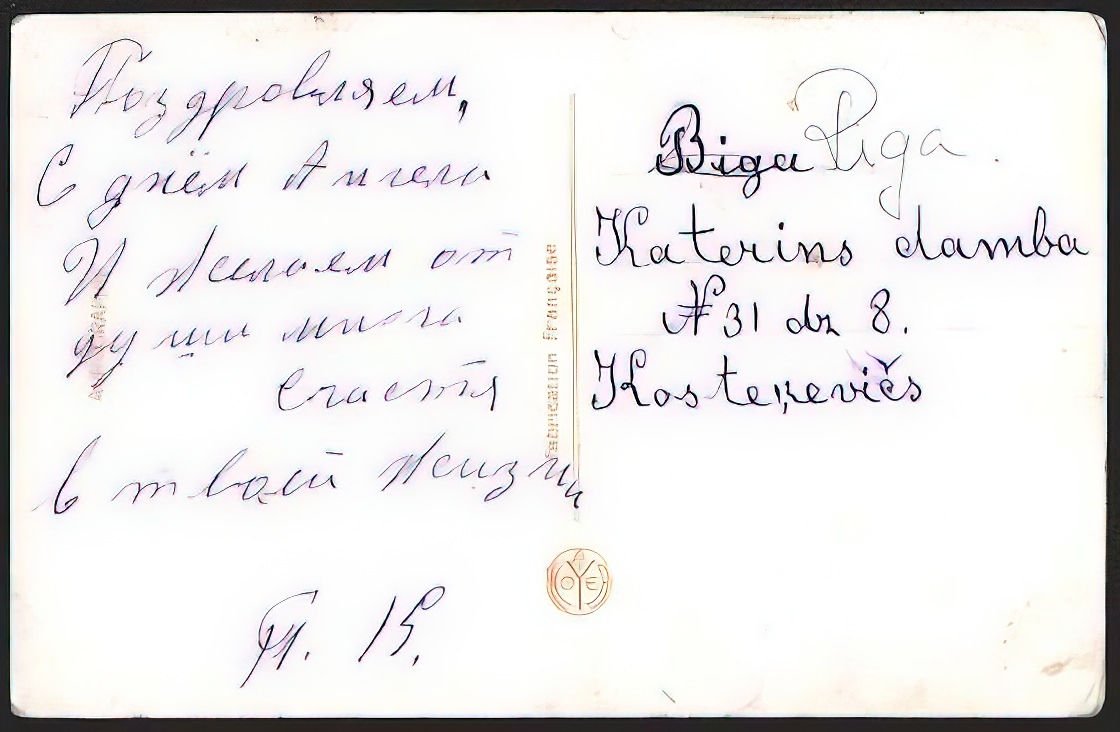 Поздровляем,
С днём Ангела
И желаем от
души много
счастя
в твоей жизни
Biga Riga.
Katerins damba
№ 31 dz 8.
Kosteņevičs
Fabrication Française